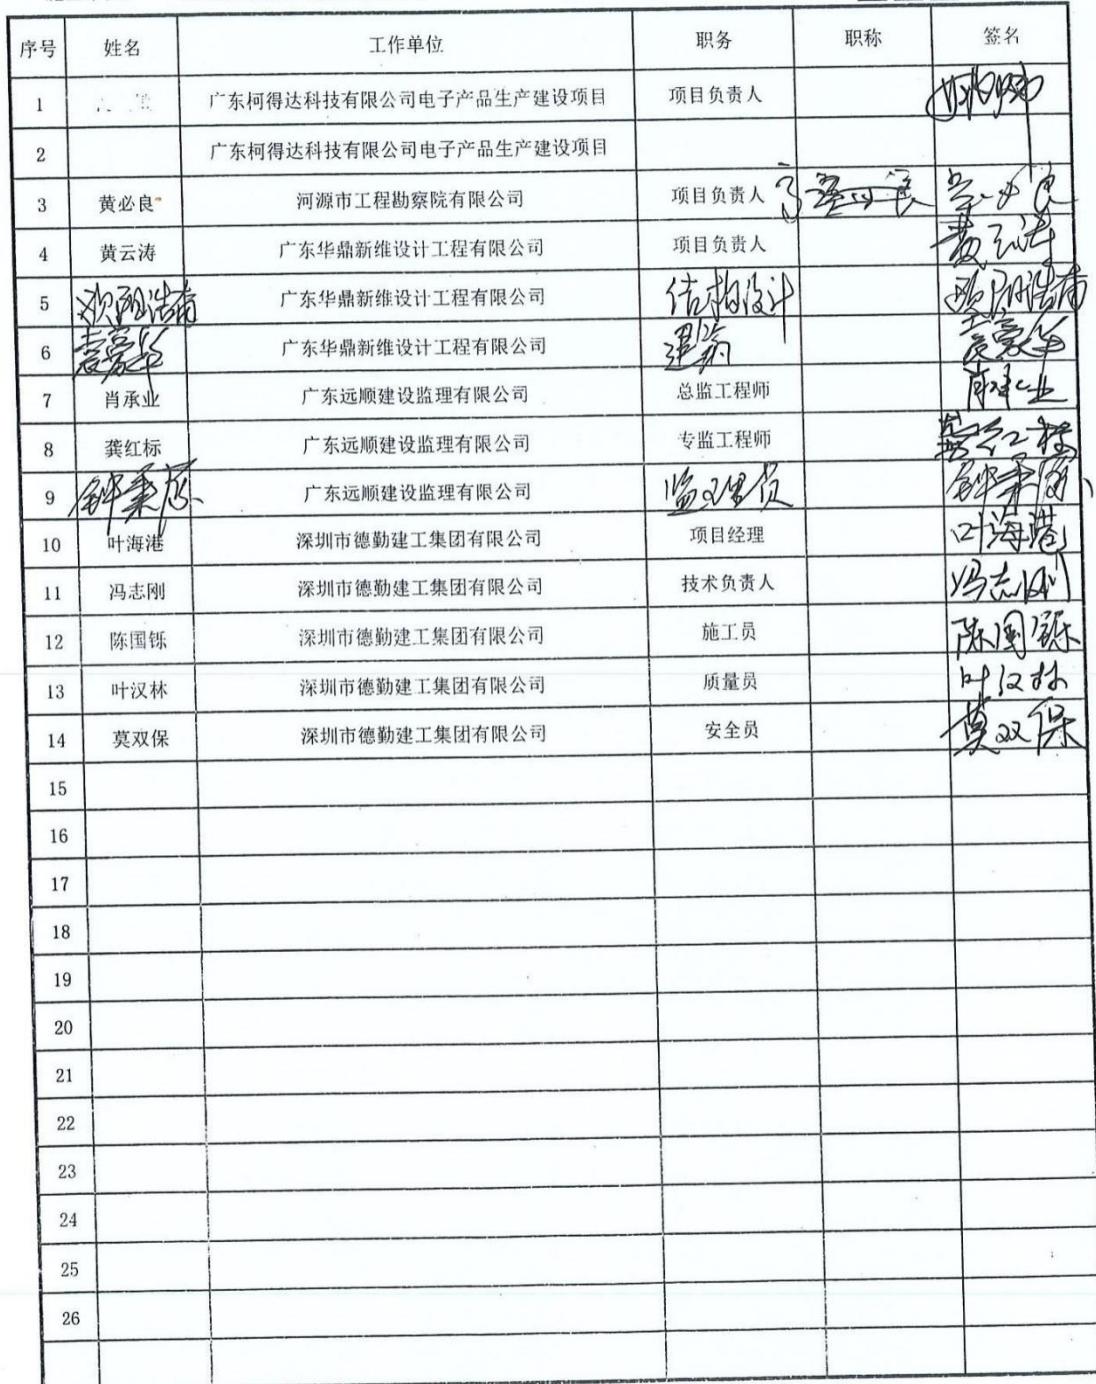 序号 姓名 工作单位 职务 职称 签名
1 广东柯得达科技有限公司电子产品生产建设项目 项目负责人
2 广东柯得达科技有限公司电子产品生产建设项目
3 黄必良 河源市工程勘察院有限公司 项目负责人
4 黄云涛 广东华鼎新维设计工程有限公司 项目负责人 黄云涛
5 欧阳浩南 广东华鼎新维设计工程有限公司 结构设计 欧阳浩南
6 袁家华 广东华鼎新维设计工程有限公司 建筑 袁家华
7 肖承业 广东远顺建设监理有限公司 总监工程师 肖承业
8 龚红标 广东远顺建设监理有限公司 专监工程师 龚红标
9 广东远顺建设监理有限公司 监理员
10 叶海港 深圳市德勤建工集团有限公司 项目经理 叶海港
11 冯志刚 深圳市德勤建工集团有限公司 技术负责人 冯志刚
12 陈国铄 深圳市德勤建工集团有限公司 施工员 陈国铄
13 叶汉林 深圳市德勤建工集团有限公司 质量员 叶汉林
14 莫双保 深圳市德勤建工集团有限公司 安全员 莫双保
15
16
17
18
19
20
21
22
23
24
25
26